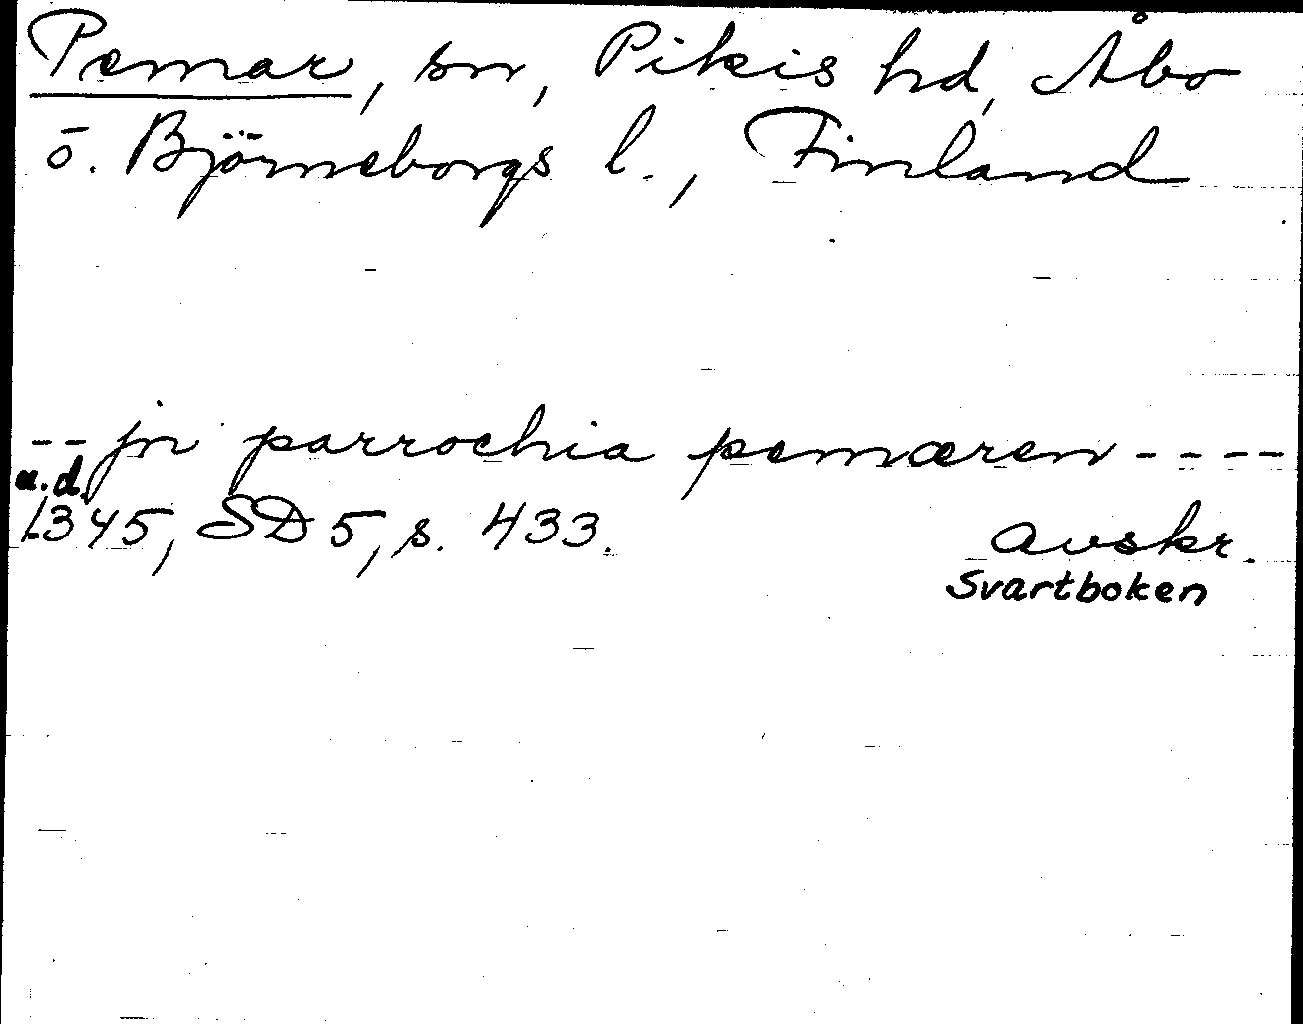 Pemar, sn, Pikis hd, Åbo
o. Björneborgs l., Finland
-- jn parrochia pemæren ----
u.d.
1345, SD 5, s. 433. avskr.
Svartboken